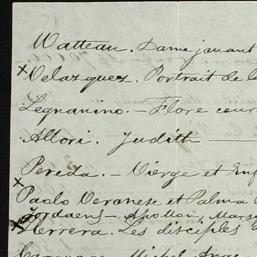 Watteau. Dame jouant
x Velazquez. Portrait de l
Legnanino. – Flore cour
Allori. Judith —
Pereda. – Vierge et Enf
x Paolo Veronese et Palma
Jordaens – Apollon, Marsy
x Herrera. Les disciples
Michel Ange